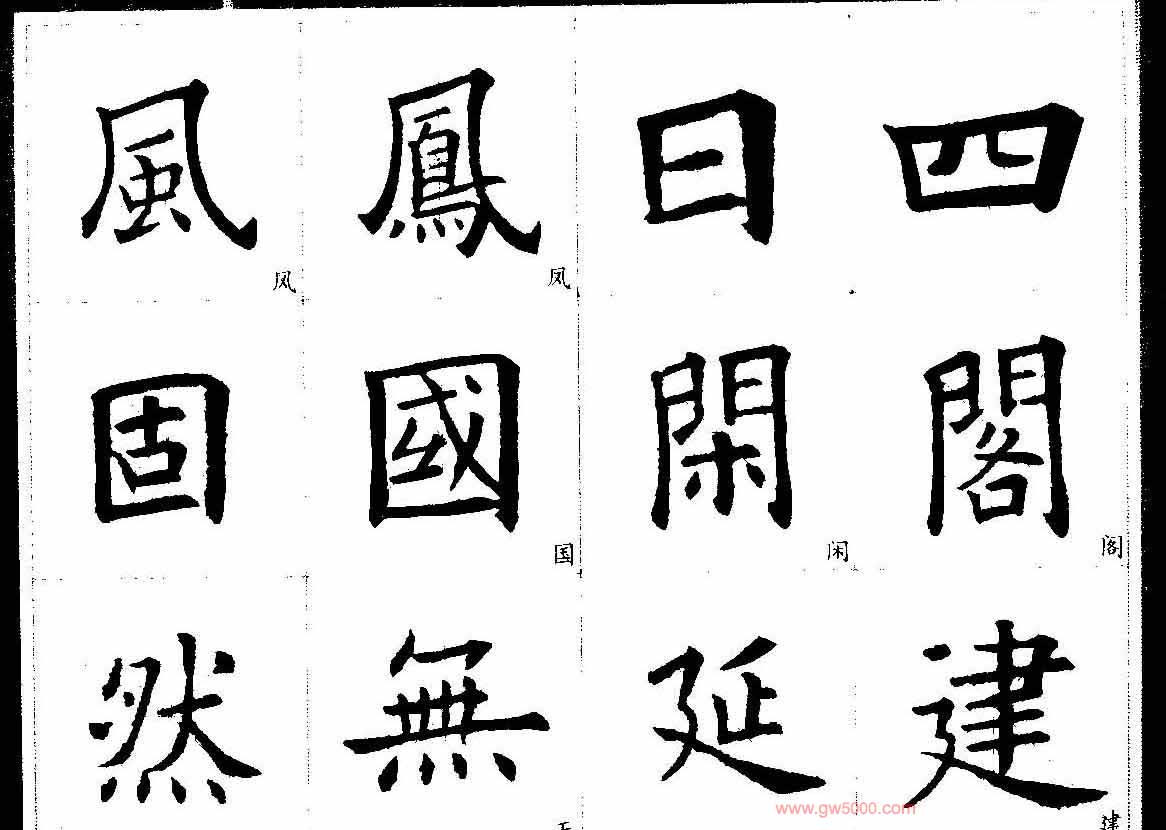 風 鳳 日 四
风 凤
固 國 閑 閣
国 闲 阁
然 無 延 建
建
www.gw5000.com